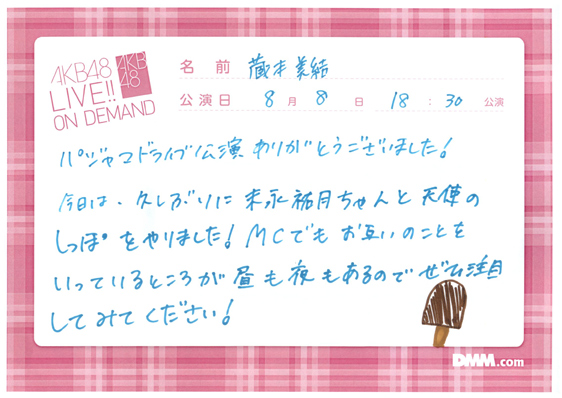 AKB48
LIVE!!
ON DEMAND
AKB
48
名前 蔵本美結
公演日 8月8日 18:30公演
パジャマドライブ公演ありがとうございました!
今日は、久しぶりに末永祐月ちゃんと天使の
しっぽをやりました!MCでもお互いのことを
いっているところが昼も夜もあるのでぜひ注目
してみてください!
DMM.com